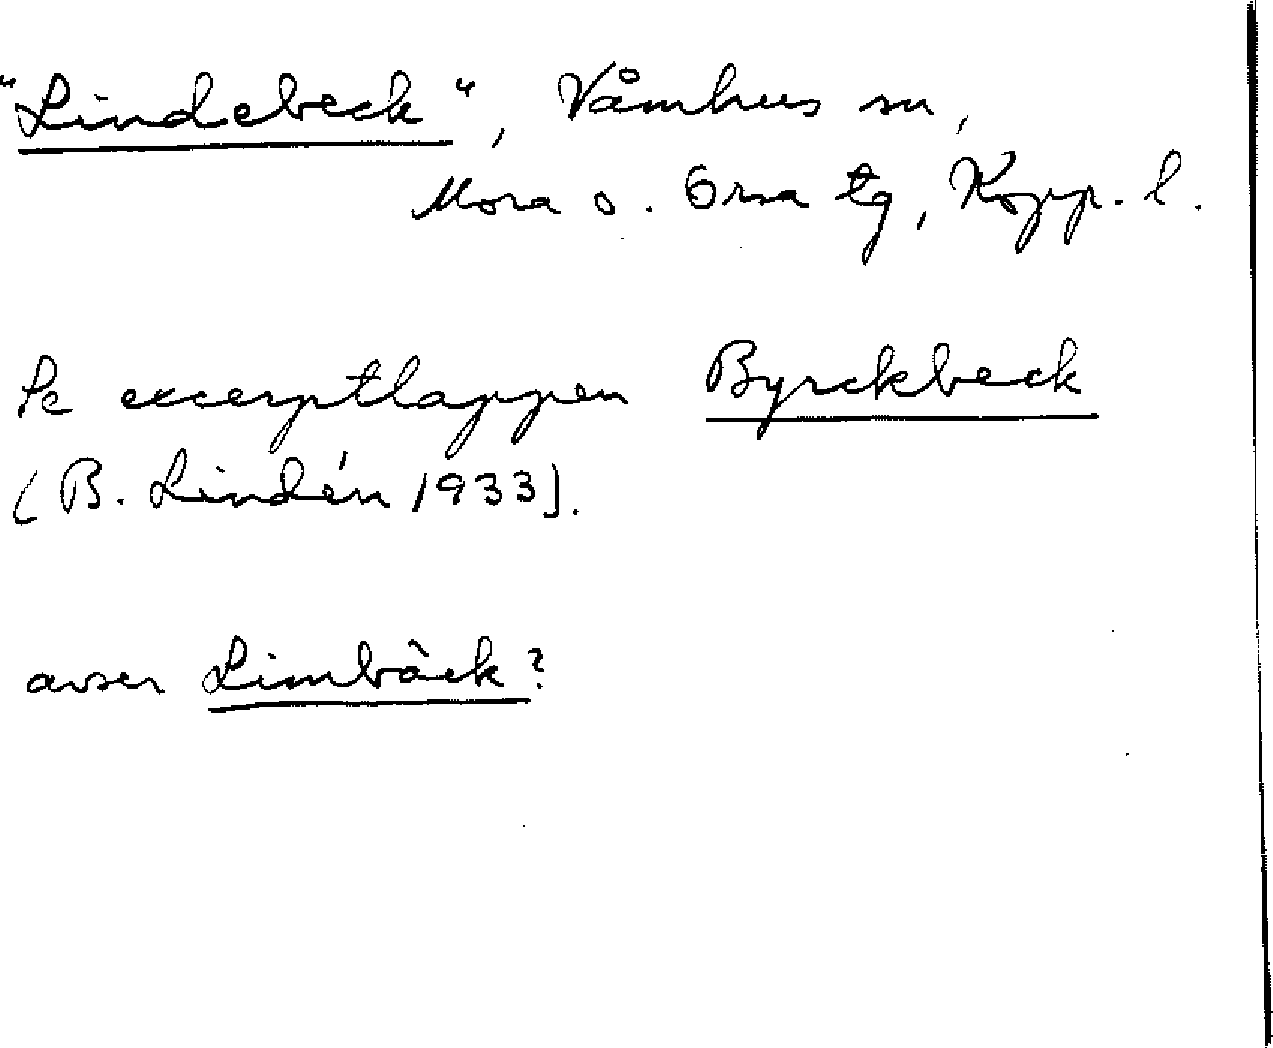 "Lindebeck", Våmhus sn,
Mora o. Orsa tg, Kopp. l.
Se excerptlappen Byrckbeck
(B. Lindén 1933).
avser Limbäck?